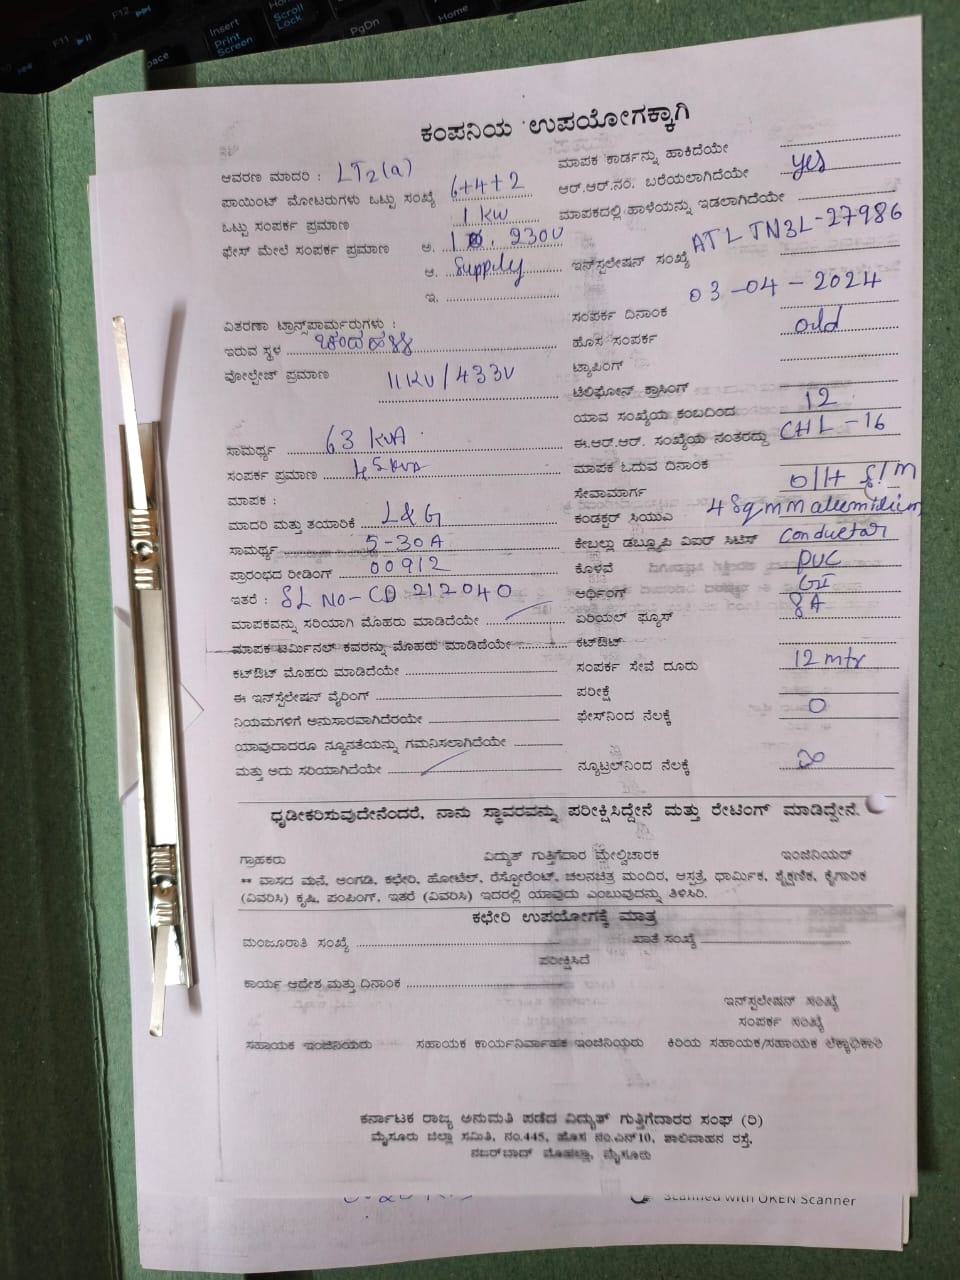 ಕಂಪನಿಯ ಉಪಯೋಗಕ್ಕಾಗಿ
ಆವರಣ ಮಾದರಿ : LT2(a)
ಪಾಯಿಂಟ್ ಮೋಟರುಗಳು ಒಟ್ಟು ಸಂಖ್ಯೆ 6+4+2
ಒಟ್ಟು ಸಂಪರ್ಕ ಪ್ರಮಾಣ 1 kw
ಫೇಸ್ ಮೇಲೆ ಸಂಪರ್ಕ ಪ್ರಮಾಣ ಅ. 230V
ಆ. Supply
ಇ.
ವಿತರಣಾ ಟ್ರಾನ್ಸ್‌ಪಾರ್ಮರುಗಳು :
ಇರುವ ಸ್ಥಳ
ವೋಲ್ಟೇಜ್ ಪ್ರಮಾಣ 11KV/433V
ಸಾಮರ್ಥ್ಯ 63 KVA
ಸಂಪರ್ಕ ಪ್ರಮಾಣ
ಮಾಪಕ :
ಮಾದರಿ ಮತ್ತು ತಯಾರಿಕೆ L&G
ಸಾಮರ್ಥ್ಯ 5-30A
ಪ್ರಾರಂಭದ ರೀಡಿಂಗ್ 00912
ಇತರೆ : SL NO-CD 212040
ಮಾಪಕವನ್ನು ಸರಿಯಾಗಿ ಮೊಹರು ಮಾಡಿದೆಯೇ
ಮಾಪಕ ಟರ್ಮಿನಲ್ ಕವರನ್ನು ಮೊಹರು ಮಾಡಿದೆಯೇ
ಕಟ್‌ಔಟ್ ಮೊಹರು ಮಾಡಿದೆಯೇ
ಈ ಇನ್‌ಸ್ಟಲೇಷನ್ ವೈರಿಂಗ್
ನಿಯಮಗಳಿಗೆ ಅನುಸಾರವಾಗಿದೆರಯೇ
ಯಾವುದಾದರೂ ನ್ಯೂನತೆಯನ್ನು ಗಮನಿಸಲಾಗಿದೆಯೇ
ಮತ್ತು ಅದು ಸರಿಯಾಗಿದೆಯೇ
ಮಾಪಕ ಕಾರ್ಡನ್ನು ಹಾಕಿದೆಯೇ
ಆರ್.ಆರ್.ನಂ. ಬರೆಯಲಾಗಿದೆಯೇ yes
ಮಾಪಕದಲ್ಲಿ ಹಾಳೆಯನ್ನು ಇಡಲಾಗಿದೆಯೇ
ಇನ್‌ಸ್ಟಲೇಷನ್ ಸಂಖ್ಯೆ ATL TN3L-27986
ಸಂಪರ್ಕ ದಿನಾಂಕ 03-04-2024
ಹೊಸ ಸಂಪರ್ಕ old
ಟ್ಯಾಪಿಂಗ್
ಟೆಲಿಫೋನ್ ಕ್ರಾಸಿಂಗ್
ಯಾವ ಸಂಖ್ಯೆಯ ಕಂಬದಿಂದ 12
ಈ.ಆರ್.ಆರ್. ಸಂಖ್ಯೆಯ ನಂತರದ್ದು CHL-16
ಮಾಪಕ ಓದುವ ದಿನಾಂಕ
ಸೇವಾಮಾರ್ಗ O/H
ಕಂಡಕ್ಟರ್ ಸಿಯುಎ 4 Sqmm alumidium
ಕೇಬಲ್ಲು ಡಬ್ಲ್ಯೂಪಿ ವಿಐರ್ ಸಿಟಿಸ್ conductar
ಕೊಳವೆ PVC
ಅರ್ಥಿಂಗ್ GI
ಏರಿಯಲ್ ಫ್ಯೂಸ್ 8A
ಕಟ್‌ಔಟ್
ಸಂಪರ್ಕ ಸೇವೆ ದೂರು 12 mtr
ಪರೀಕ್ಷೆ
ಫೇಸ್‌ನಿಂದ ನೆಲಕ್ಕೆ 0
ನ್ಯೂಟ್ರಲ್‌ನಿಂದ ನೆಲಕ್ಕೆ
ಧೃಡೀಕರಿಸುವುದೇನೆಂದರೆ, ನಾನು ಸ್ಥಾವರವನ್ನು ಪರೀಕ್ಷಿಸಿದ್ದೇನೆ ಮತ್ತು ರೇಟಿಂಗ್ ಮಾಡಿದ್ದೇನೆ.
ಗ್ರಾಹಕರು ವಿದ್ಯುತ್ ಗುತ್ತಿಗೆದಾರ ಮೇಲ್ವಿಚಾರಕ ಇಂಜಿನಿಯರ್
** ವಾಸದ ಮನೆ, ಅಂಗಡಿ, ಕಛೇರಿ, ಹೋಟೆಲ್, ರೆಸ್ಟೋರೆಂಟ್, ಚಲನಚಿತ್ರ ಮಂದಿರ, ಆಸ್ಪತ್ರೆ, ಧಾರ್ಮಿಕ, ಶೈಕ್ಷಣಿಕ, ಕೈಗಾರಿಕ
(ವಿವರಿಸಿ) ಕೃಷಿ, ಪಂಪಿಂಗ್, ಇತರೆ (ವಿವರಿಸಿ) ಇದರಲ್ಲಿ ಯಾವುದು ಎಂಬುವುದನ್ನು ತಿಳಿಸಿರಿ.
ಕಛೇರಿ ಉಪಯೋಗಕ್ಕೆ ಮಾತ್ರ
ಮಂಜೂರಾತಿ ಸಂಖ್ಯೆ ಖಾತೆ ಸಂಖ್ಯೆ
ಪರೀಕ್ಷಿಸಿದೆ
ಕಾರ್ಯ ಆದೇಶ ಮತ್ತು ದಿನಾಂಕ
ಇನ್‌ಸ್ಟಲೇಷನ್ ಸಂಖ್ಯೆ
ಸಂಪರ್ಕ ಸಂಖ್ಯೆ
ಸಹಾಯಕ ಇಂಜಿನಿಯರು ಸಹಾಯಕ ಕಾರ್ಯನಿರ್ವಾಹಕ ಇಂಜಿನಿಯರು ಕಿರಿಯ ಸಹಾಯಕ/ಸಹಾಯಕ ಲೆಕ್ಕಾಧಿಕಾರಿ
ಕರ್ನಾಟಕ ರಾಜ್ಯ ಅನುಮತಿ ಪಡೆದ ವಿದ್ಯುತ್ ಗುತ್ತಿಗೆದಾರರ ಸಂಘ (ರಿ)
ಮೈಸೂರು ಜಿಲ್ಲಾ ಸಮಿತಿ, ನಂ.445, ಹೊಸ ನಂ.ಎನ್10, ಶಾಲಿವಾಹನ ರಸ್ತೆ,
ನಜರ್‌ಬಾದ್ ಮೊಹಲ್ಲಾ, ಮೈಸೂರು
Scanned with OKEN Scanner